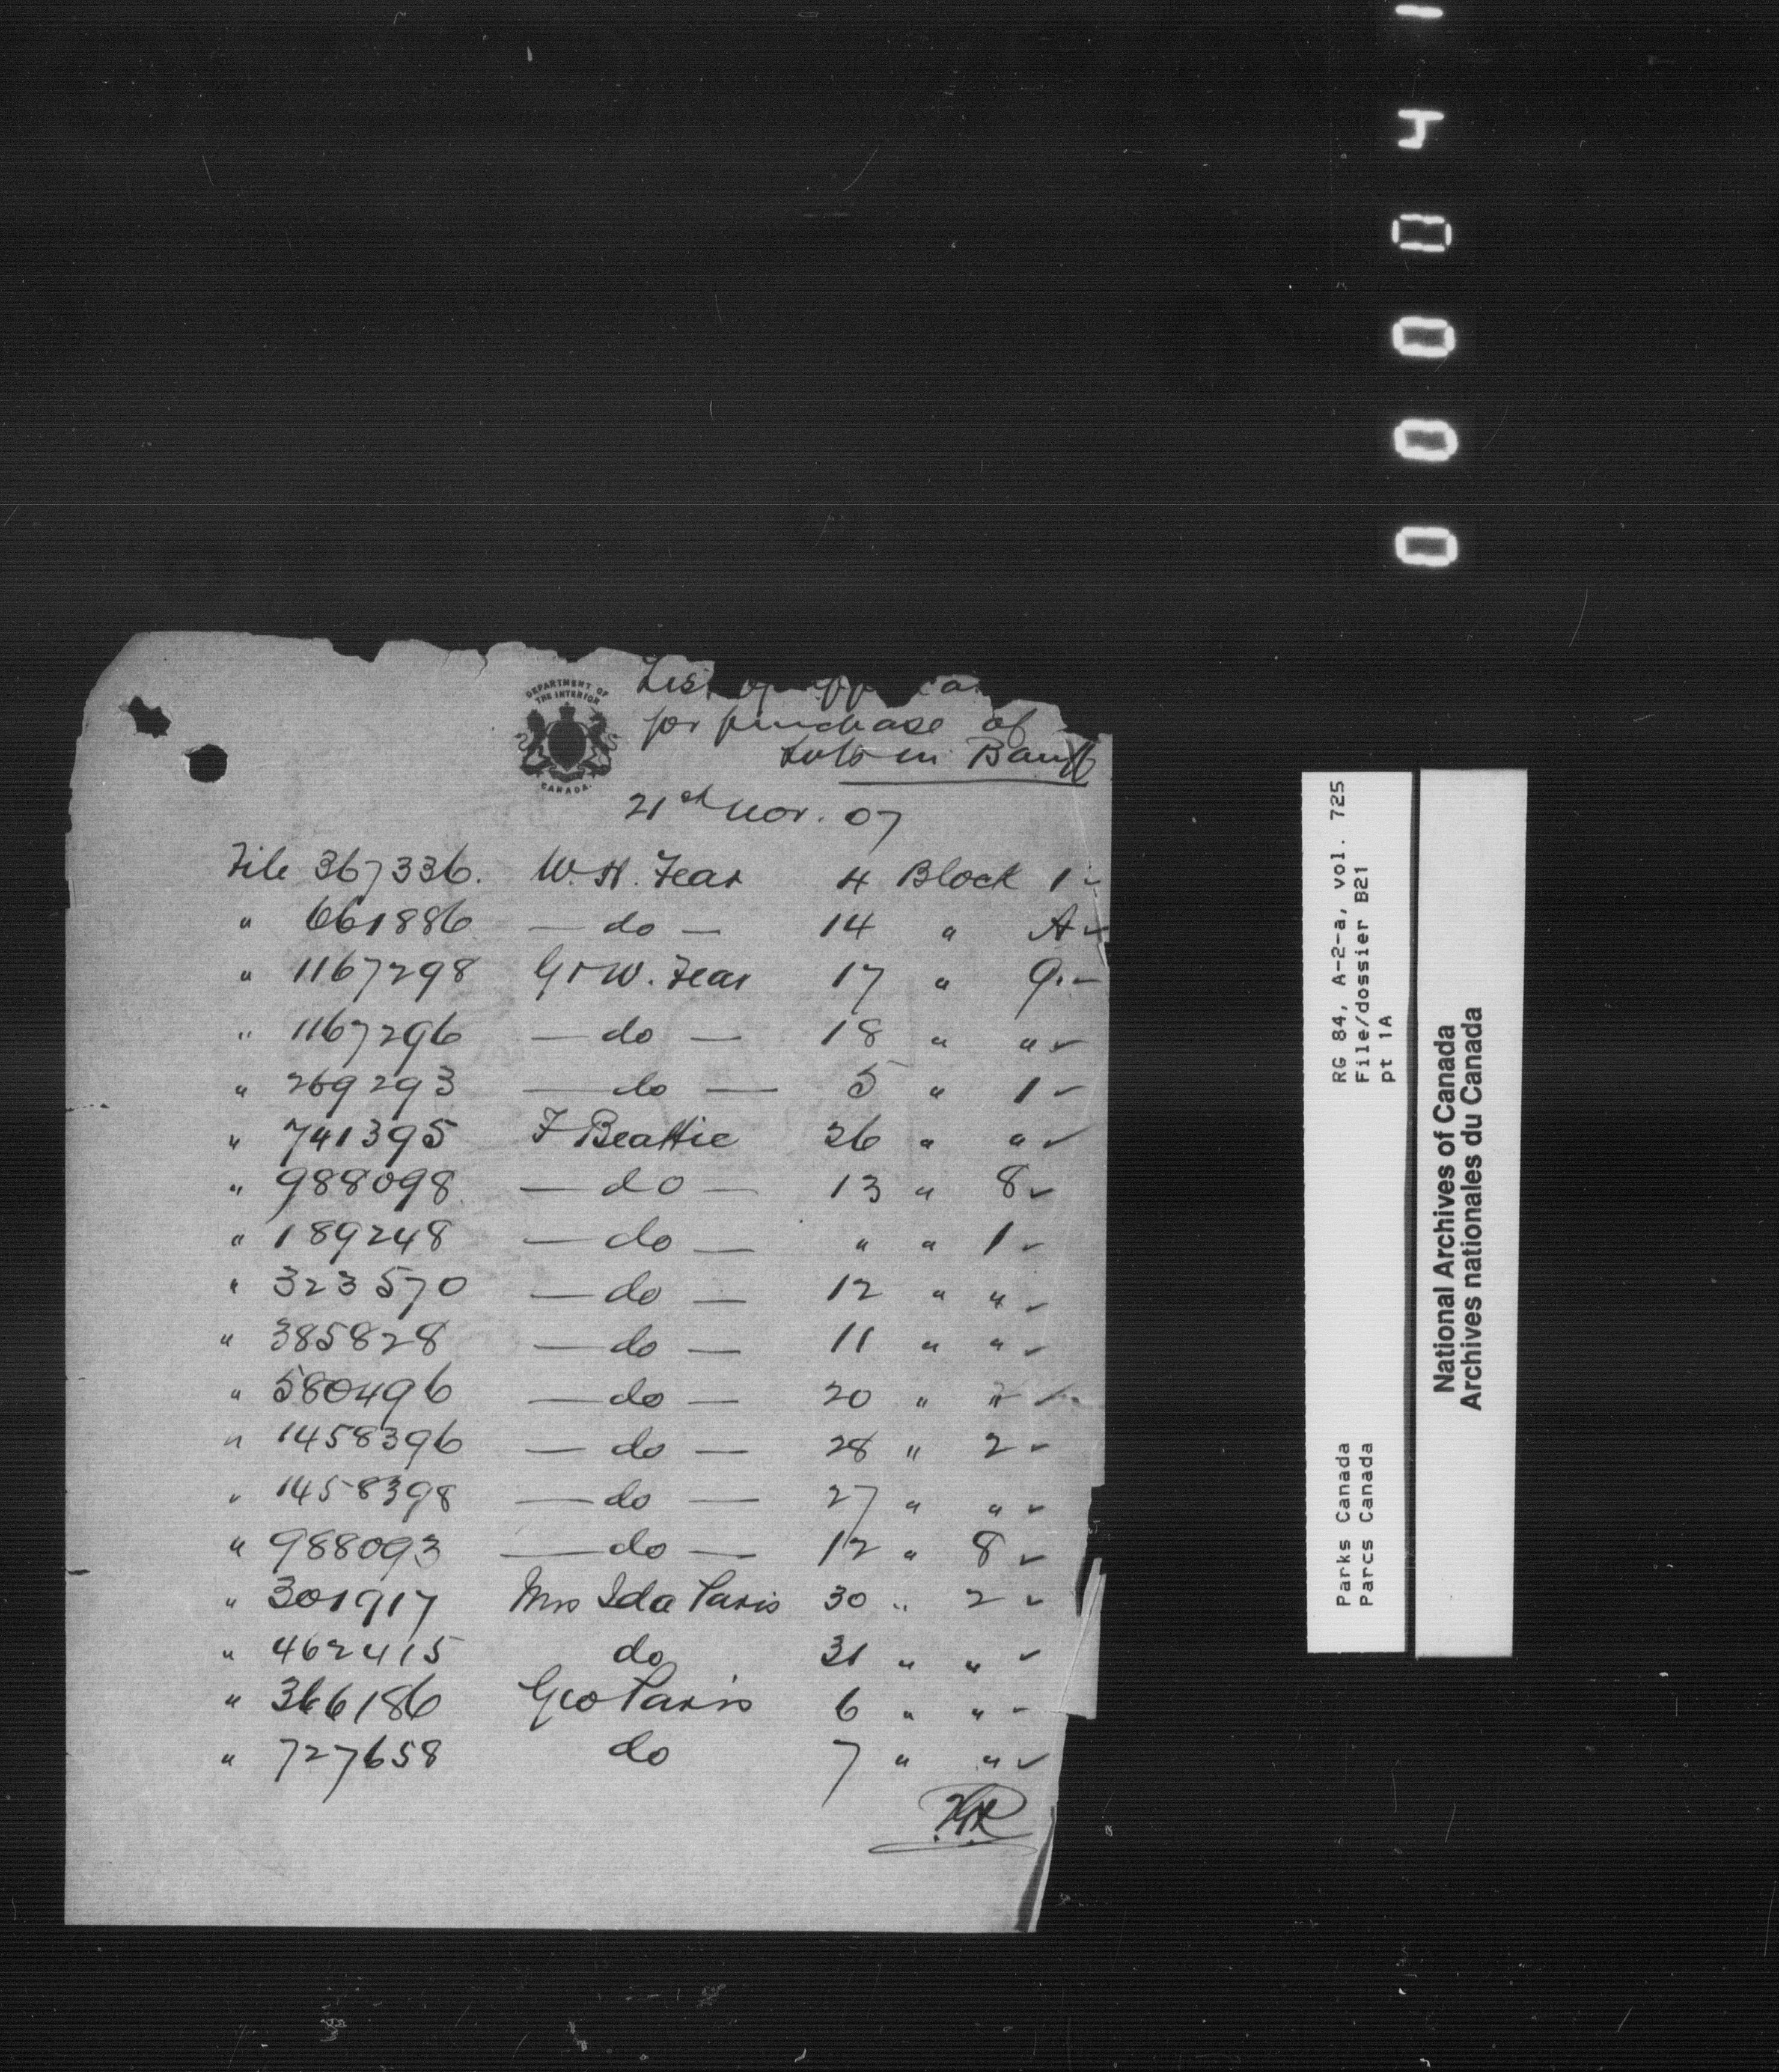 DEPARTMENT OF
THE INTERIOR
CANADA
List of
for purchase of
Lots in Banff
21st Nov. 07
File 367336. W. H. Fear 4 Block 1 ✓
" 661886 — do — 14 " A ✓
" 1167298 G & W. Fear 17 " 9. ✓
" 1167296 — do — 18 " " ✓
" 269293 — do — 5 " 1 ✓
" 741395 F Beattie 26 " " ✓
" 988098 — do — 13 " 8 ✓
" 189248 — do — " " 1 ✓
" 323570 — do — 12 " " ✓
" 385828 — do — 11 " " ✓
" 580496 — do — 20 " " ✓
" 1458396 — do — 28 " 2 ✓
" 1458398 — do — 27 " " ✓
" 988093 — do — 12 " 8 ✓
" 301917 Mrs Ida Paris 30 " 2 ✓
" 462415 do 31 " " ✓
" 366186 Geo Paris 6 " " ✓
" 727658 do 7 " " ✓
RG 84, A-2-a, vol. 725
File/dossier B21
pt 1A
Parks Canada
Parcs Canada
National Archives of Canada
Archives nationales du Canada